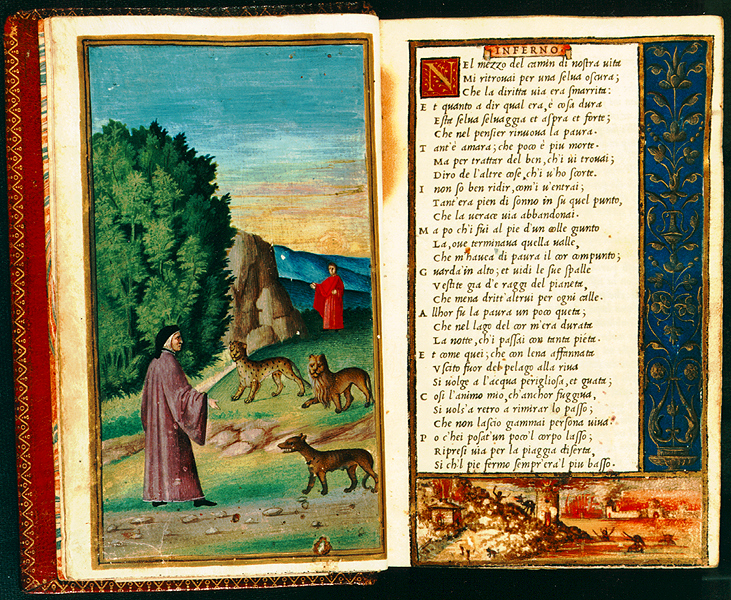 INFERNO
NEl mezzo del camin di nostra uita
Mi ritrouai per una selua oscura;
Che la diritta uia era smarrita:
E t quanto a dir qual era, è cosa dura
Esta selua seluaggia et aspra et forte;
Che nel pensier rinuoua la paura.
T ant'è amara; che poco è piu morte.
Ma per trattar del ben, ch'i ui trouai;
Diro de l'altre cose, ch'i u'ho scorte.
I non so ben ridir, com'i u'entrai;
Tant'era pien di sonno in su quel punto,
Che la uerace uia abbandonai.
M a po ch'i fui al pie d'un colle giunto
La, oue terminaua quella ualle,
Che m'hauea di paura il cor compunto;
G uarda'in alto; et uidi le sue spalle
Vestite gia de raggi del pianeta,
Che mena dritt'altrui per ogni calle.
A llhor fu la paura un poco queta;
Che nel lago del cor m'era durata
La notte, ch'i passai con tanta pieta.
E t come quei; che con lena affannata
Vscito fuor del pelago alla riua
Si uolge a l'acqua perigliosa, et guata;
C osi l'animo mio, ch'anchor fuggiua,
Si uols'a retro a rimirar lo passo;
Che non lascio giammai persona uiua.
P o c'hei posat'un poco'l corpo lasso;
Ripresi uia per la piaggia diserta,
Si ch'l pie fermo sempr'era'l piu basso.